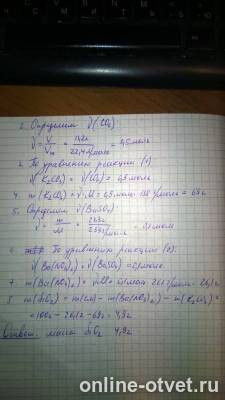 2. Определим ν(CO₂):
ν = V/Vm = 11,2л/22,4л/моль = 0,5моль
3. По уравнению реакции (1)
ν(K₂CO₃) = ν(CO₂) = 0,5 моль
4. m(K₂CO₃) = ν·M = 0,5 моль · 138 г/моль = 69г
5. Определим ν(BaSO₄):
ν = m/M = г/моль = 0,1моль
6. По уравнению реакции (2):
ν(Ba(NO₃)₂) = ν(BaSO₄) = 0,1моль
7. m(Ba(NO₃)₂) = ν·M = 0,1моль · 261 г/моль = 26,1г
8. m(SiO₂) = m(см) - m(Ba(NO₃)₂) - m(K₂CO₃) =
= 100г - 26,1г - 69г = 4,9г
Ответ: масса SiO₂ 4,9г
online-otvet.ru